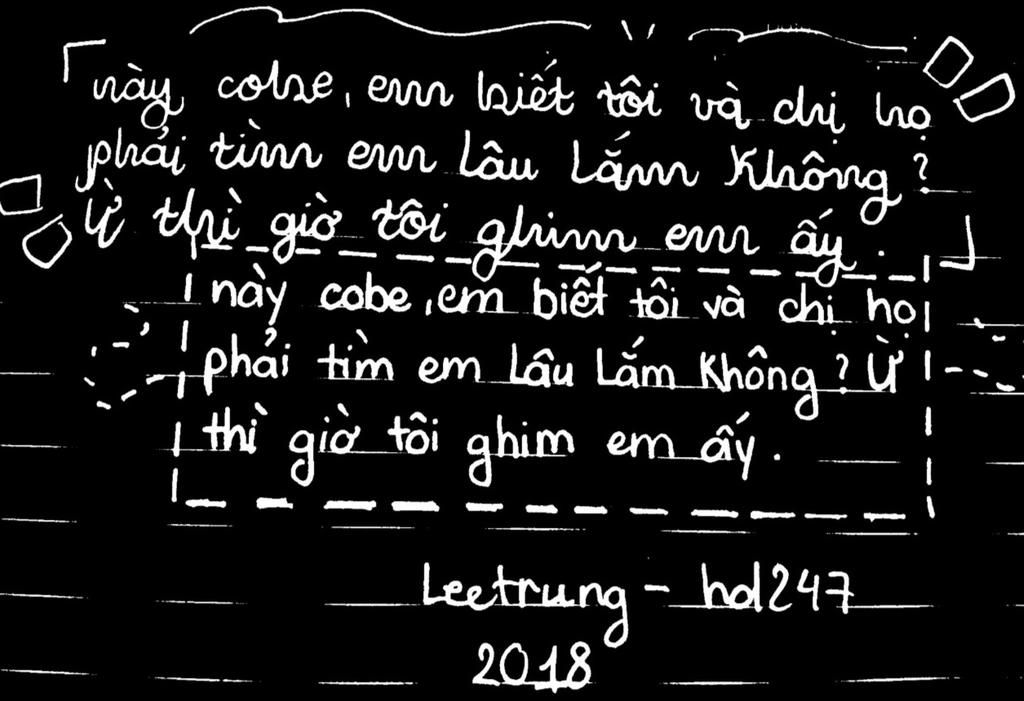 này, cobe, em biết tôi và chị họ
phải tìm em Lâu Lắm Không?
Ừ thì giờ tôi ghim em ấy.
này cobe, em biết tôi và chị họ
phải tìm em Lâu Lắm Không? Ừ
thì giờ tôi ghim em ấy.
Leetrung - hd247
2018